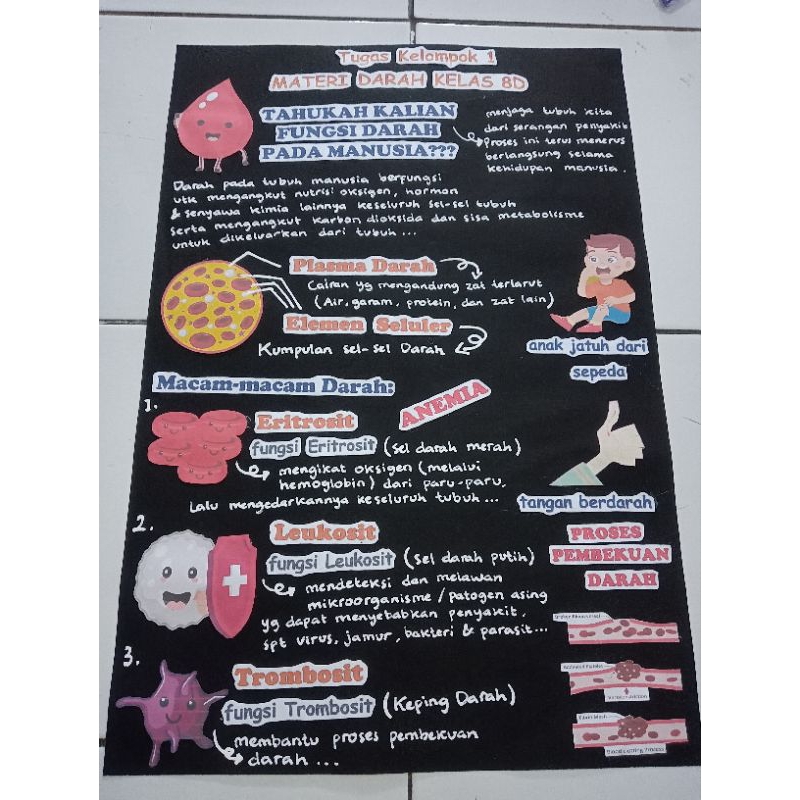 Tugas Kelompok 1
MATERI DARAH KELAS 8D
TAHUKAH KALIAN
FUNGSI DARAH
PADA MANUSIA???
menjaga tubuh kita
dari serangan penyakit
Proses ini terus menerus
berlangsung selama
kehidupan manusia.
Darah pada tubuh manusia berfungsi
utk mengangkut nutrisi oksigen, hormon
& senyawa kimia lainnya keseluruh sel-sel tubuh
serta mengangkut karbon dioksida dan sisa metabolisme
untuk dikeluarkan dari tubuh ...
Plasma Darah
Cairan yg mengandung zat terlarut
(Air, garam, protein, dan zat lain)
Elemen Seluler
Kumpulan sel-sel Darah
anak jatuh dari
sepeda
Macam-macam Darah:
ANEMIA
1.
Eritrosit
fungsi Eritrosit (sel darah merah)
mengikat oksigen (melalui
hemoglobin) dari paru-paru,
lalu mengedarkannya keseluruh tubuh ...
tangan berdarah
2.
Leukosit
fungsi Leukosit (sel darah putih)
mendeteksi dan melawan
mikroorganisme / patogen asing
yg dapat menyebabkan penyakit,
spt virus, jamur, bakteri & parasit...
PROSES
PEMBEKUAN
DARAH
3.
Trombosit
fungsi Trombosit (Keping Darah)
membantu proses pembekuan
darah ...